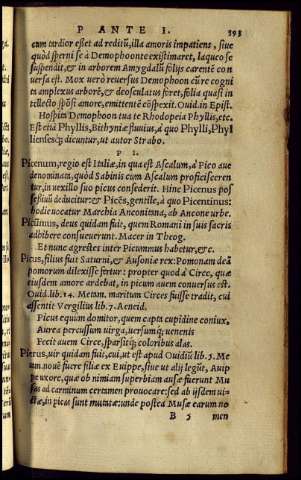 P ANTE I.
393
cum tardior esset ad reditũ, illa amoris impatiens, siue
quòd sperni se à Demophoonte existimaret, laqueo se
suspendit, & in arborem Amygdalũ folijs carentẽ con
uersa est. Mox uerò reuersus Demophoon cũ re cogni
ta amplexus arborẽ, & deosculatus foret, folia quasi in
tellecto spõsi amore, emittẽtẽ cõspexit. Ouid. in Epist.
Hospita Demophoon tua te Rhodopeia Phyllis, etc.
Est etiã Phyllis, Bithyniæ fluuius, à quo Phylli, Phyl
lienses'q; dicuntur, ut autor Strabo.
P I.
Picenum, regio est Italiæ, in qua est Asculum, à Pico aue
denominatũ, quòd Sabinis cum Asculum proficiscerẽn
tur, in uexillo suo picus consederit. Hinc Picenus pos
sessiuũ deducitur: & Picẽs, gentile, à quo Picentinus:
hodie uocatur Marchia Anconitana, ab Ancone urbe.
Picũnus, deus quidam fuit, quem Romani in suis sacris
adhibere consueuerunt. Macer in Theog.
Et nunc agrestes inter Picumnus habetur, &c.
Picus, filius fuit Saturni, & Ausoniæ rex: Pomonan deã
pomorum dilexisse fertur: propter quod à Circe, quæ
eiusdem amore ardebat, in picum auem conuersus est.
Ouid. lib. 14. Metam. maritum Circes fuisse tradit, cui
assentit Vergilius lib. 7. Aeneid.
Picus equûm domitor, quem capta cupidine coniux,
Aurea percussum uirga, uersum'q; uenenis
Fecit auem Circe, sparsit'q; coloribus alas.
Pierus, uir quidam fuit, cui, ut est apud Ouidiũ lib. 5. Me
tam nouẽ fuere filiæ ex Euippe, siue ut alij legũt, Auip
pe uxore, quæ ob nimiam superbiam ausæ fuerunt Mu
sas ad carminum certamen prouocare: sed ab ijsdem ui-
ctæ, in picas sunt mutatæ: unde postea Musæ earum no
B 5 men